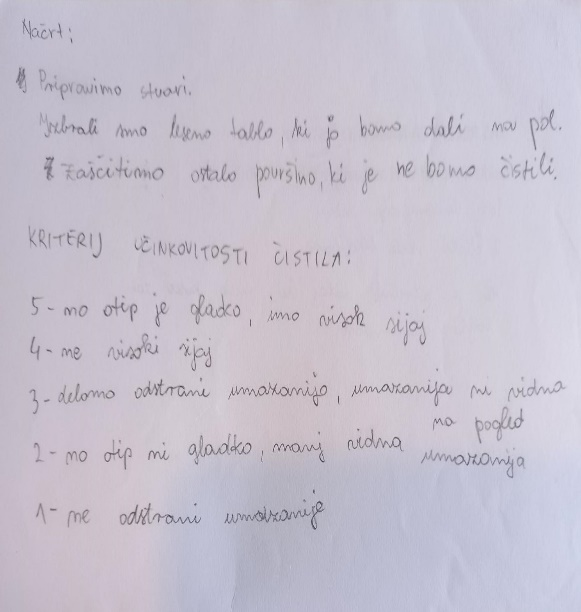 Načrt:
Pripravimo stvari.
Izbrali smo leseno tablo, ki jo bomo dali na pol.
Zaščitimo ostalo površino, ki je ne bomo čistili.
KRITERIJ UČINKOVITOSTI ČISTILA:
5 - na otip je gladko, ima visok sijaj
4 - ne visoki sijaj
3 - delamo odstrani umazanijo, umazanija ni vidna
na pogled
2 - na otip ni gladko, manj vidna umazanija
1 - ne odstrani umazanije